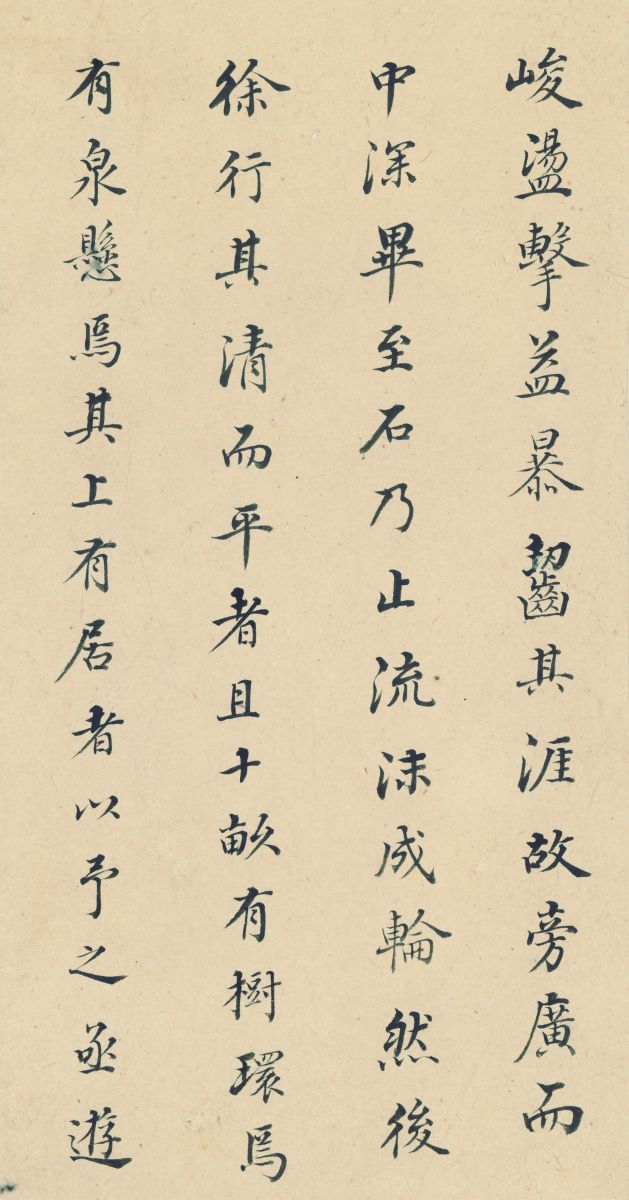 峻盪擊益暴齧其涯故旁廣而
中深畢至石乃止流沫成輪然後
徐行其清而平者且十畝有樹環焉
有泉懸焉其上有居者以予之亟遊